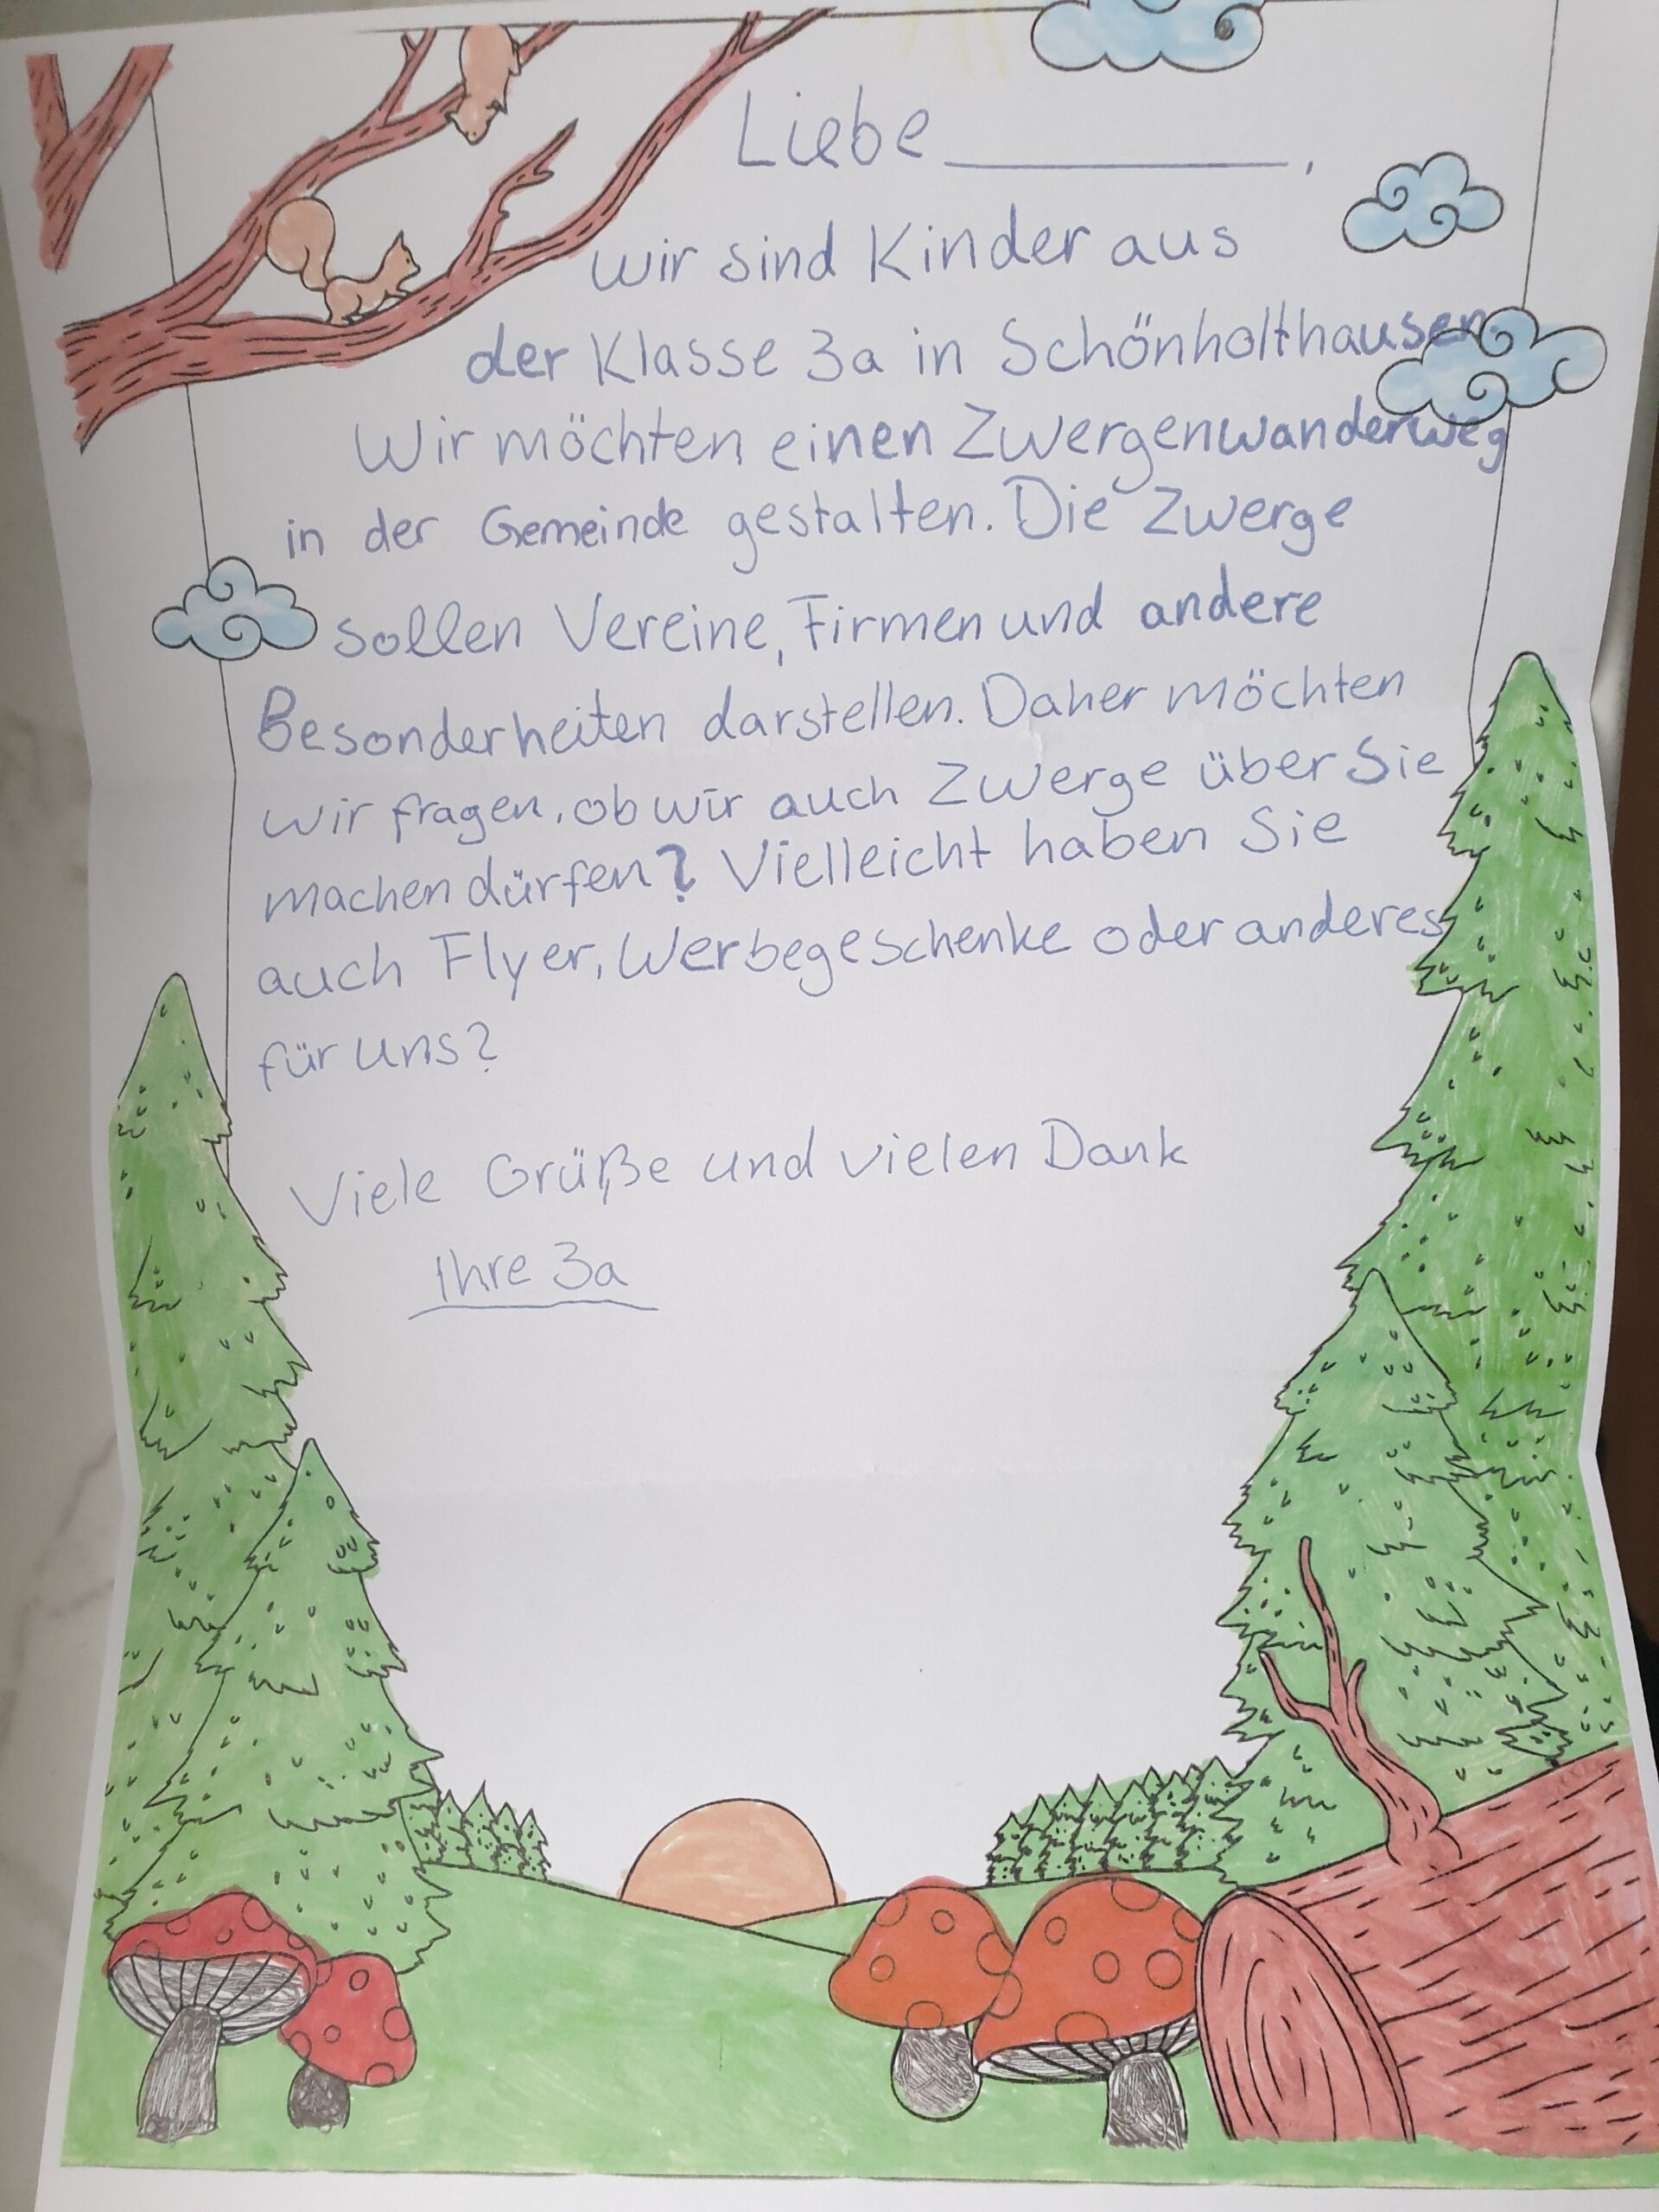 Liebe __________,
wir sind Kinder aus
der Klasse 3a in Schönholthausen.
Wir möchten einen Zwergenwanderweg
in der Gemeinde gestalten. Die Zwerge
sollen Vereine, Firmen und andere
Besonderheiten darstellen. Daher möchten
wir fragen, ob wir auch Zwerge über Sie
machen dürfen? Vielleicht haben Sie
auch Flyer, Werbegeschenke oder anderes
für uns?
Viele Grüße und vielen Dank
Ihre 3a